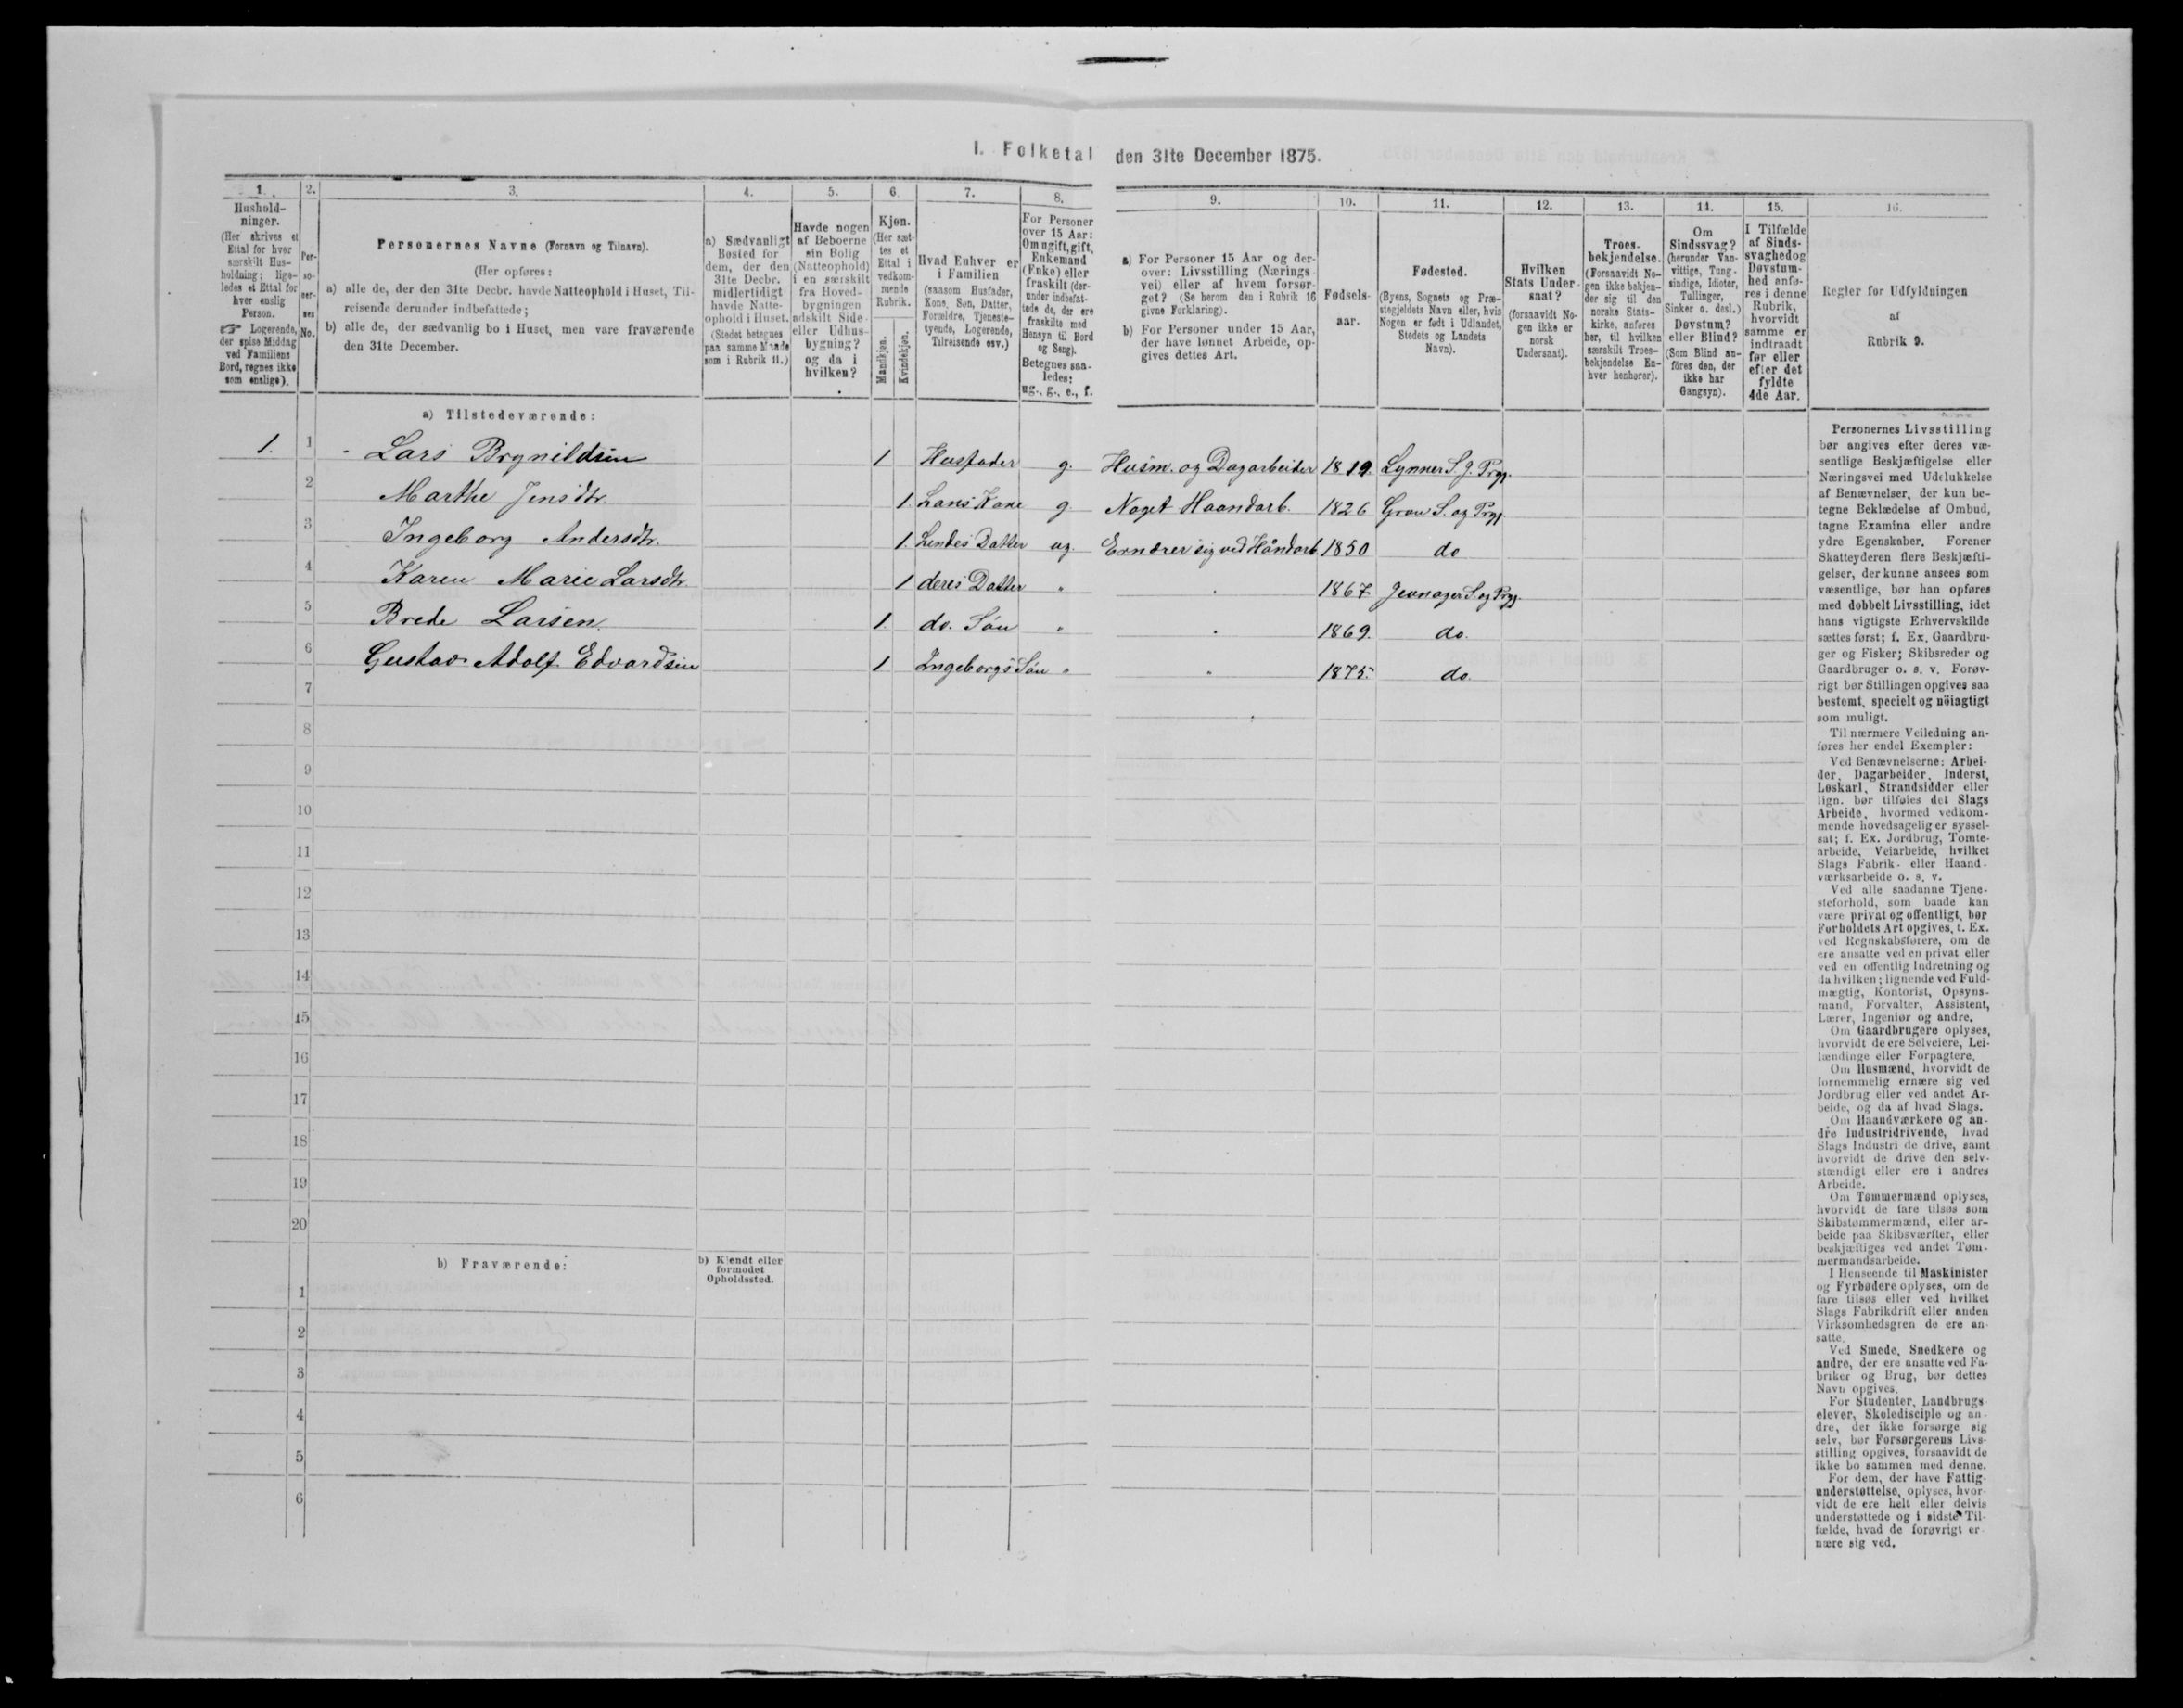 I. Folketal den 31te December 1875.
1. 2. 3. 4. 5. 6. 7. 8. 9. 10. 11. 12. 13. 14. 15. 16.
Hushold-
ninger.
(Her skrives et
Ettal for hver
særskilt Hus-
holdning; lige-
ledes et Ettal for
hver enslig
Person.
☞ Logerende,
der spise Middag
ved Familiens
Bord, regnes ikke
som enslige).
Per-
so-
ner-
nes
No.
Personernes Navne (Fornavn og Tilnavn).
(Her opføres:
a) alle de, der den 31te Decbr. havde Natteophold i Huset, Til-
reisende derunder indbefattede;
b) alle de, der sædvanlig bo i Huset, men vare fraværende
den 31te December.
a) Sædvanligt
Bosted for
dem, der den
31te Decbr.
midlertidigt
havde Natte-
ophold i Huset.
(Stedet betegnes
paa samme Maade
som i Rubrik 11.)
Havde nogen
af Beboerne
sin Bolig
(Natteophold)
i en særskilt
fra Hoved-
bygningen
adskilt Side-
eller Udhus-
bygning?
og da i
hvilken?
Kjøn.
(Her sæt-
tes et
Ettal i
vedkom-
mende
Rubrik.
Mandkjøn.
Kvindekjøn.
Hvad Enhver er
i Familien
(saasom Husfader,
Kone, Søn, Datter,
Forældre, Tjeneste-
tyende, Logerende,
Tilreisende osv.)
For Personer
over 15 Aar:
Om ugift, gift,
Enkemand
(Enke) eller
fraskilt (der-
under indbefat-
tede de, der ere
fraskilte med
Hensyn til Bord
og Seng).
Betegnes saa-
ledes:
ug., g., e., f.
a) For Personer 15 Aar og der-
over: Livsstilling (Nærings-
vei) eller af hvem forsør-
get? (Se herom den i Rubrik 16
givne Forklaring).
b) For Personer under 15 Aar,
der have lønnet Arbeide, op-
gives dettes Art.
Fødsels-
aar.
Fødested.
(Byens, Sognets og Præ-
stegjeldets Navn eller, hvis
Nogen er født i Udlandet,
Stedets og Landets
Navn).
Hvilken
Stats Under-
saat?
(forsaavidt No-
gen ikke er
norsk
Undersaat).
Troes-
bekjendelse.
(Forsaavidt No-
gen ikke bekjen-
der sig til den
norske Stats-
kirke, anføres
her, til hvilken
særskilt Troes-
bekjendelse En-
hver henhører).
Om
Sindssvag?
(herunder Van-
vittige, Tung-
sindige, Idioter,
Tullinger,
Sinker o. desl.)
Døvstum?
eller Blind?
(Som Blind an-
føres den, der
ikke har
Gangsyn).
I Tilfælde
af Sinds-
svaghed og
Døvstum-
hed anfø-
res i denne
Rubrik,
hvorvidt
samme er
indtraadt
før eller
efter det
fyldte
4de Aar.
Regler for Udfyldningen
af
Rubrik 9.
a) Tilstedeværende:
1. 1 Lars Brynildsen 1 Husfader g. Husm. og Dagarbeider 1819. Lynner S. J. Prgj.
2 Marthe Jensdtr. 1. Lars' Kone g. Noget Haandarb. 1826 Gran S. og Prgj.
3 Ingeborg Andersdtr. 1. Datter ug. Ernærer sig ved Håndarb. 1850 do
4 Karen Marie Larsdtr. 1 deres Datter " " 1867. Jevnager S. og Prgj.
5 Brede Larsen. 1. do. Søn " " 1869. do.
6 Gustav Adolf Edvardsen 1 Ingeborgs Søn " " 1875. do.
7
8
9
10
11
12
13
14
15
16
17
18
19
20
b) Fraværende:
b) Kjendt eller
formodet
Opholdssted.
1
2
3
4
5
6
Personernes Livsstilling
bør angives efter deres væ-
sentlige Beskjæftigelse eller
Næringsvei med Udelukkelse
af Benævnelser, der kun be-
tegne Beklædelse af Ombud,
tagne Examina eller andre
ydre Egenskaber. Forener
Skatteyderen flere Beskjæfti-
gelser, der kunne ansees som
væsentlige, bør han opføres
med dobbelt Livsstilling, idet
hans vigtigste Erhvervskilde
sættes først; f. Ex. Gaardbru-
ger og Fisker; Skibsreder og
Gaardbruger o. s. v. Forøv-
rigt bør Stillingen opgives saa
bestemt, specielt og nöiagtigt
som muligt.
Til nærmere Veiledning an-
føres her endel Exempler:
Ved Benævnelserne: Arbei-
der, Dagarbeider, Inderst,
Løskarl, Strandsidder eller
lign. bør tilføies det Slags
Arbeide, hvormed vedkom-
mende hovedsagelig er syssel-
sat; f. Ex. Jordbrug, Tomte-
arbeide, Veiarbeide, hvilket
Slags Fabrik- eller Haand-
værksarbeide o. s. v.
Ved alle saadanne Tjene-
steforhold, som baade kan
være privat og offentligt, bør
Forholdets Art opgives, t. Ex.
ved Regnskabsførere, om de
ere ansatte ved en privat eller
ved en offentlig Indretning og
da hvilken; lignende ved Fuld-
mægtig, Kontorist, Opsyns-
mand, Forvalter, Assistent,
Lærer, Ingeniør og andre.
Om Gaardbrugere oplyses,
hvorvidt de ere Selveiere, Lei-
lændinge eller Forpagtere.
Om Husmænd, hvorvidt de
fornemmelig ernære sig ved
Jordbrug eller ved andet Ar-
beide, og da af hvad Slags.
Om Haandværkere og an-
dre Industridrivende, hvad
Slags Industri de drive, samt
hvorvidt de drive den selv-
stændigt eller ere i andres
Arbeide.
Om Tømmermænd oplyses,
hvorvidt de fare tilsøs som
Skibstømmermænd, eller ar-
beide paa Skibsværfter, eller
beskjæftiges ved andet Tøm-
mermandsarbeide.
I Henseende til Maskinister
og Fyrbødere oplyses, om de
fare tilsøs eller ved hvilket
Slags Fabrikdrift eller anden
Virksomhedsgren de ere an-
satte.
Ved Smede, Snedkere og
andre, der ere ansatte ved Fa-
briker og Brug, bør dettes
Navn opgives.
For Studenter, Landbrugs-
elever, Skoledisciple og an-
dre, der ikke forsørge sig
selv, bør Forsørgerens Livs-
stilling opgives, forsaavidt de
ikke bo sammen med denne.
For dem, der have Fattig-
understøttelse, oplyses, hvor-
vidt de ere helt eller delvis
understøttede og i sidste Til-
fælde, hvad de forøvrigt er-
nære sig ved.